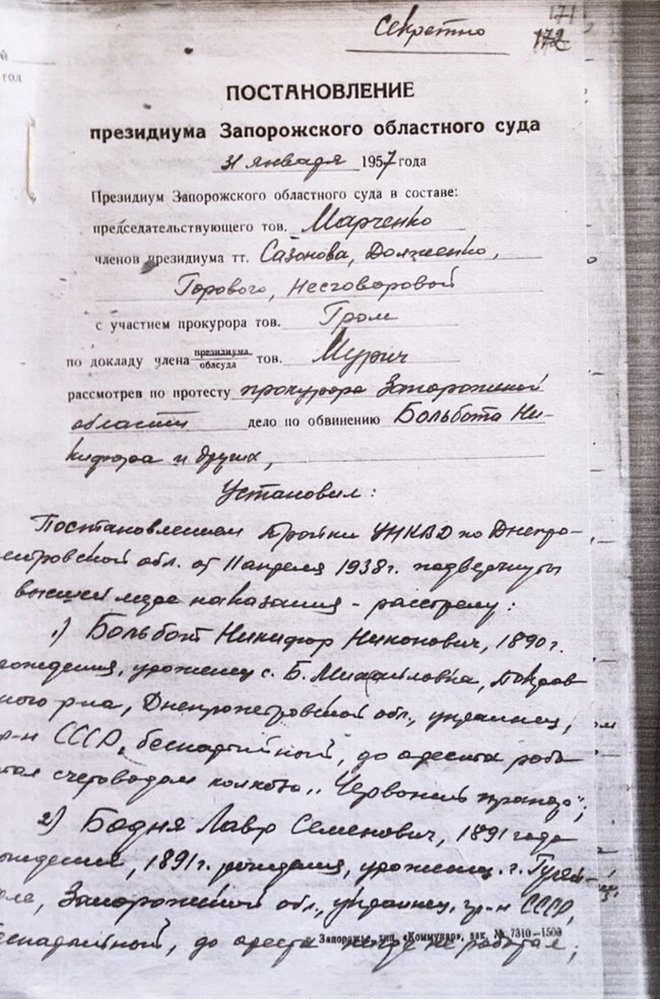 171
172
Секретно
год
ПОСТАНОВЛЕНИЕ
президиума Запорожского областного суда
31 января 1957 года
Президиум Запорожского областного суда в составе:
председательствующего тов. Марченко
членов президиума тт. Сазонова, Долженко,
Горового, Несговоровой
с участием прокурора тов. Гром
по докладу члена президиума облсуда тов. Мурич
рассмотрев по протесту прокурора Запорожской
области дело по обвинению Больбота Ни-
кифора и других,
Установил:
Постановлением Тройки УНКВД по Днепро-
петровской обл. от 11 апреля 1938 г. подвергнуты
высшей мере наказания - расстрелу:
1) Больбот Никифор Никонович, 1890 г.
рождения, уроженец с. Б. Михайловка, Покров
ного р-на, Днепропетровской обл., украинец,
гр-н СССР, беспартийный, до ареста рабо
тал счетоводом колхоза „Червоний прапор";
2) Бодня Лавр Семенович, 1891 года
рождения, 1891 г. рождения, уроженец г. Гуляй-
поле, Запорожской обл., украинец, гр-н СССР,
беспартийный, до ареста нигде не работал;
Запорожье, тип. «Коммунар», зак. № 7310-1500